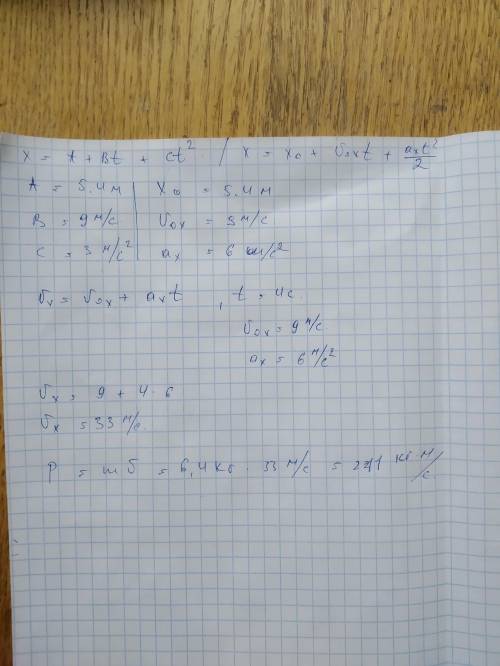 x = A + Bt + Ct² / x = x₀ + v₀ₓt + aₓt²/2
A = 5.4м | x₀ = 5.4м
B = 9 м/с | v₀ₓ = 9 м/с
C = 3 м/с² | aₓ = 6 м/с²
vₓ = v₀ₓ + aₓt , t = 4с
v₀ₓ = 9 м/с
aₓ = 6 м/с²
vₓ = 9 + 4 · 6
vₓ = 33 м/с
P = mv = 6,4кг · 33 м/с = 211 кг·м/с